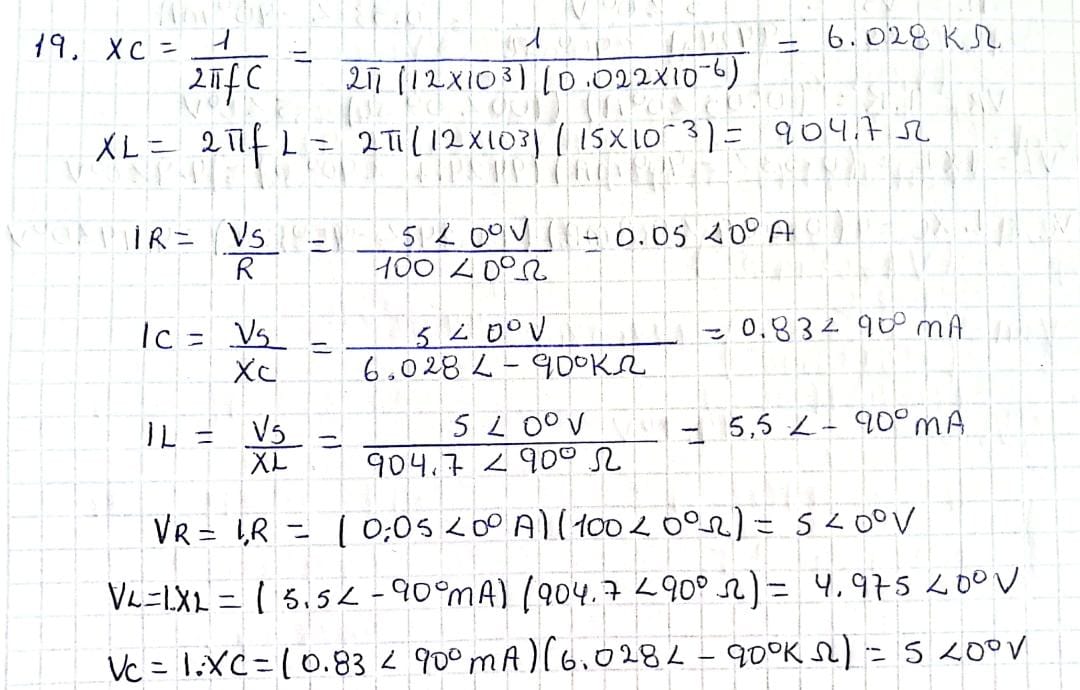 19. XC = 1/2πfC = 1/2π(12X10³)(0.022X10⁻⁶) = 6.028 KΩ
XL = 2πfL = 2π(12X10³)(15X10⁻³) = 904.7 Ω
IR = VS/R = 5∠0°V/100∠0°Ω = 0.05∠0°A
IC = VS/XC = 5∠0°V/6.028∠-90°KΩ = 0.83∠90°mA
IL = VS/XL = 5∠0°V/904.7∠90°Ω = 5,5∠-90°mA
VR = I.R = (0,05∠0°A)(100∠0°Ω) = 5∠0°V
VL=I.XL = (5.5∠-90°mA)(904.7∠90°Ω) = 4.975∠0°V
VC = I.XC = (0.83∠90°mA)(6.028∠-90°KΩ) = 5∠0°V